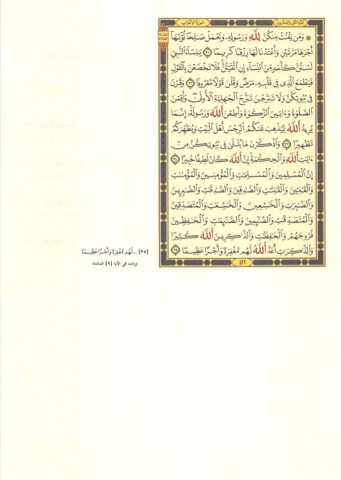 وَمَن يَقْنُتْ مِنكُنَّ لِلَّهِ وَرَسُولِهِ وَتَعْمَلْ صَالِحًا نُّؤْتِهَا
أَجْرَهَا مَرَّتَيْنِ وَأَعْتَدْنَا لَهَا رِزْقًا كَرِيمًا ﴿٣١﴾ يَا نِسَاءَ النَّبِيِّ
لَسْتُنَّ كَأَحَدٍ مِّنَ النِّسَاءِ إِنِ اتَّقَيْتُنَّ فَلَا تَخْضَعْنَ بِالْقَوْلِ
فَيَطْمَعَ الَّذِي فِي قَلْبِهِ مَرَضٌ وَقُلْنَ قَوْلًا مَّعْرُوفًا ﴿٣٢﴾ وَقَرْنَ
فِي بُيُوتِكُنَّ وَلَا تَبَرَّجْنَ تَبَرُّجَ الْجَاهِلِيَّةِ الْأُولَىٰ وَأَقِمْنَ
الصَّلَاةَ وَآتِينَ الزَّكَاةَ وَأَطِعْنَ اللَّهَ وَرَسُولَهُ إِنَّمَا
يُرِيدُ اللَّهُ لِيُذْهِبَ عَنكُمُ الرِّجْسَ أَهْلَ الْبَيْتِ وَيُطَهِّرَكُمْ
تَطْهِيرًا ﴿٣٣﴾ وَاذْكُرْنَ مَا يُتْلَىٰ فِي بُيُوتِكُنَّ مِنْ
آيَاتِ اللَّهِ وَالْحِكْمَةِ إِنَّ اللَّهَ كَانَ لَطِيفًا خَبِيرًا ﴿٣٤﴾
إِنَّ الْمُسْلِمِينَ وَالْمُسْلِمَاتِ وَالْمُؤْمِنِينَ وَالْمُؤْمِنَاتِ
وَالْقَانِتِينَ وَالْقَانِتَاتِ وَالصَّادِقِينَ وَالصَّادِقَاتِ وَالصَّابِرِينَ
وَالصَّابِرَاتِ وَالْخَاشِعِينَ وَالْخَاشِعَاتِ وَالْمُتَصَدِّقِينَ
وَالْمُتَصَدِّقَاتِ وَالصَّائِمِينَ وَالصَّائِمَاتِ وَالْحَافِظِينَ
فُرُوجَهُمْ وَالْحَافِظَاتِ وَالذَّاكِرِينَ اللَّهَ كَثِيرًا
وَالذَّاكِرَاتِ أَعَدَّ اللَّهُ لَهُم مَّغْفِرَةً وَأَجْرًا عَظِيمًا ﴿٣٥﴾
[٣٥] ... لَهُم مَّغْفِرَةً وَأَجْرًا عَظِيمًا
وردت في الآية [٩] المائدة